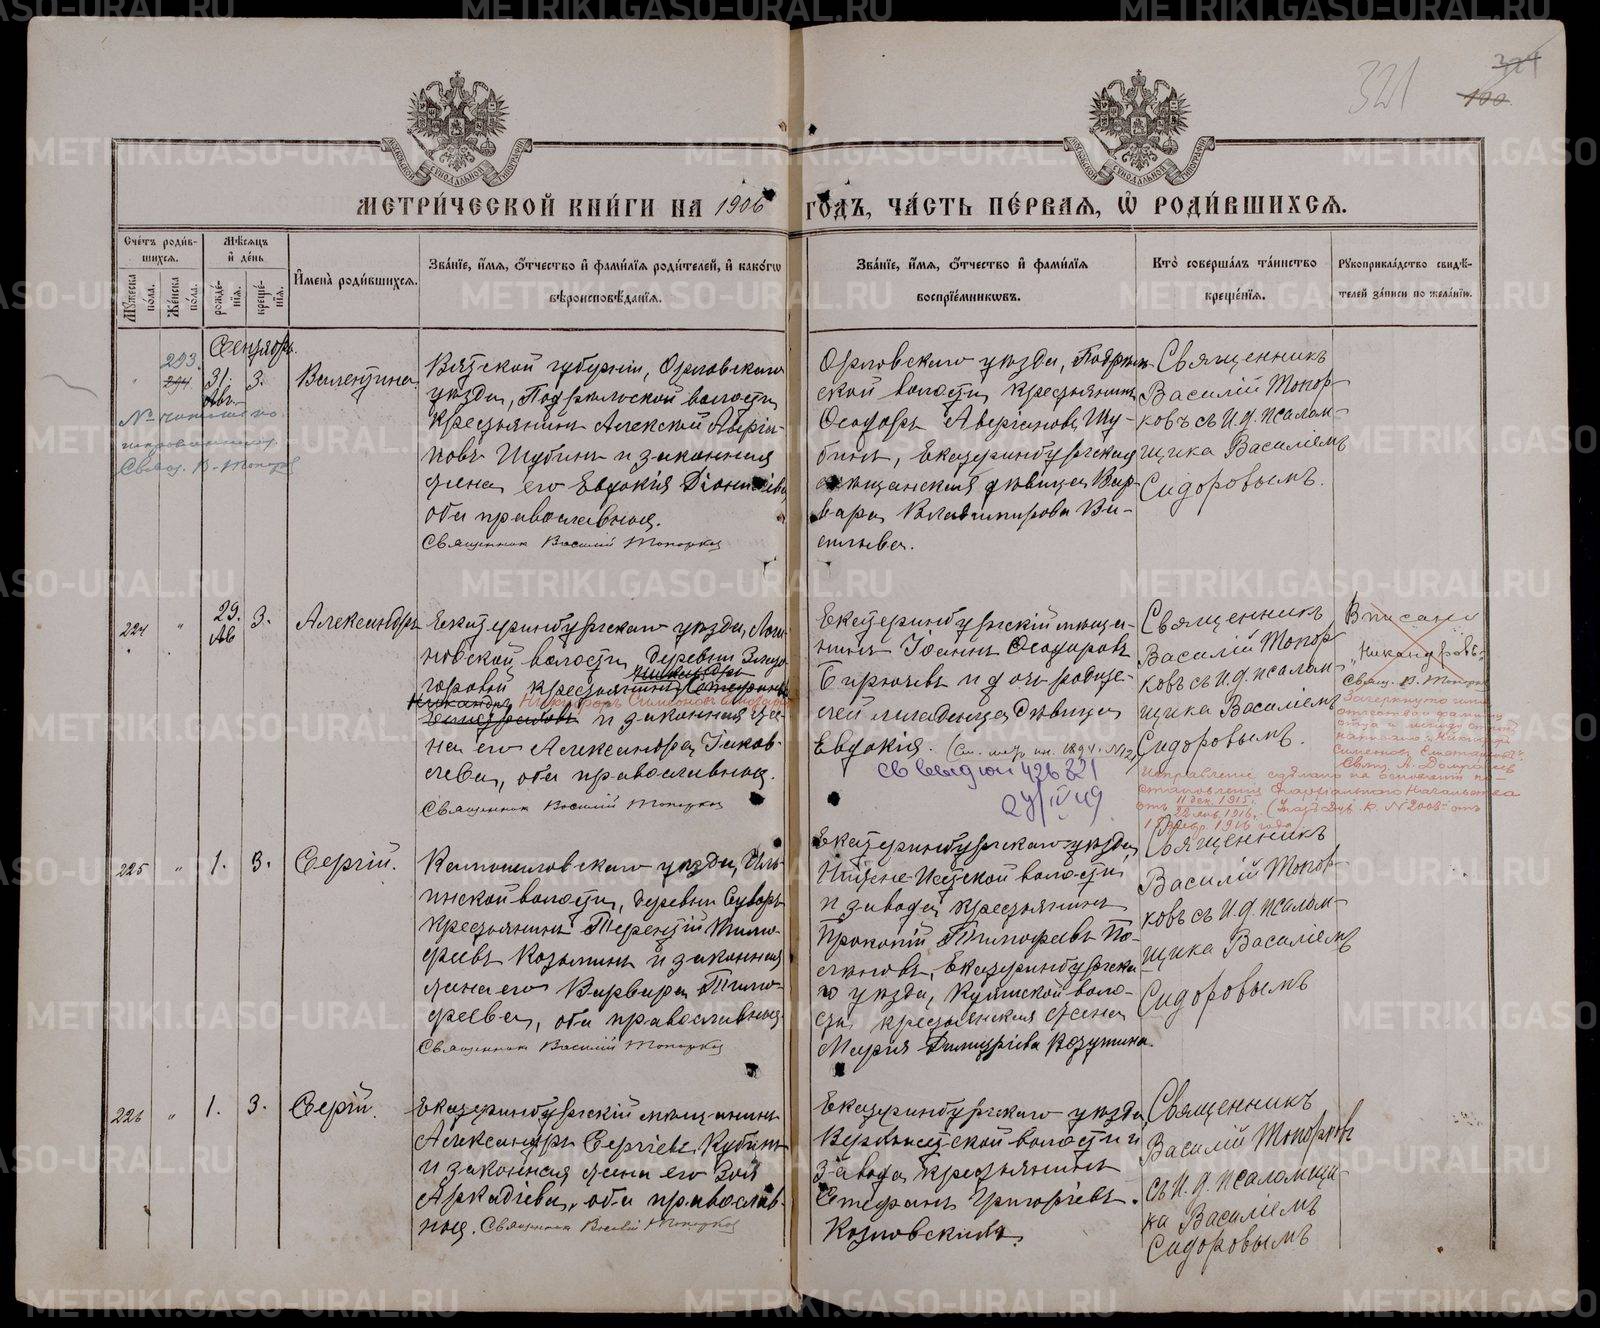 321
324
100
МЕТРИ́ЧЕСКОЙ КНИ́ГИ НА 1906 ГОДЪ, ЧА́СТЬ ПЕ́РВАЯ, Ѡ РОДИ́ВШИХСЯ.
Сче́тъ роди́в-
шихся.
Мѣ́сяцъ
и де́нь
Имена̀ роди́вшихся.
Зва́нїе, и́мя, о́тчество и фами́лїя роди́телей, и како́гѡ
вѣроисповѣ́данїя.
Зва́нїе, и́мя, о́тчество и фами́лїя
воспрїе́мникѡвъ.
Кто̀ соверша́лъ та́инство
креще́нїя.
Рукоприкла́дство свидѣ́-
телей за́писи по жела́нїю.
Му́жеска по́ла.
Же́нска по́ла.
рожде́-нїя.
креще́-нїя.
Сентябрь.
223.
224.
31.
Авг.
3.
Валентина
Священ. В. Топорковъ
Вятской губерніи, Орловскаго
уѣзда, Подрѣльской волости
крестьянинъ Алексѣй Аверіа-
новъ Шубинъ и законная
жена его Евдокія Діонисіева,
оба православные.
Священник Василій Топорков
Орловскаго уѣзда, Подрѣль-
ской волости крестьянинъ
Ѳеодоръ Аверіановъ Шу-
бинъ, Екатеринбургская
мѣщанская дѣвица Вар-
вара Владимирова Ва-
сильева.
Священникъ
Василій Топор-
ковъ съ И. д. псалом-
щика Василіемъ
Сидоровымъ.
224
"
29.
Ав
3.
Александръ
Екатеринбургскаго уѣзда, Логи-
новской волости, деревни
крестьянинъ
Никифоръ Симеоновъ
и законная же-
на его Александра Іаков-
лева, оба православные.
Священник Василій Топорков
Екатеринбургскій мѣща-
нинъ Іоаннъ Ѳеодоровъ
Бирючевъ и дочь родите-
лей младенца дѣвица
Евдокія. (См. метр. кн. 1894 г. №12)
св выдан 426 821
27/IV 49
Священникъ
Василій Топор-
ковъ съ И. д. псалом-
щика Василіемъ
Сидоровымъ.
Вписано
"Никандровъ"
Свящ. В. Топорков
Зачеркнуто имя
отчество и фамилія
отца и между строкъ
написано
Исправленіе сдѣлано на основаніи по-
становленія Епархіальнаго Начальства
отъ 11 дек. 1915 г.
22 янв. 1916 г. (Указъ Дух. К. № 2008 отъ
1916 года)
225
"
1.
3.
Сергій.
Камышловскаго уѣзда, Иль-
инской волости, деревни Суворъ
крестьянинъ Терентій Тимо-
феевъ Козьминъ и законная
жена его Варвара Тимо-
феева, оба православные.
Священник Василій Топорков
Екатеринбургскаго уѣзда,
Нижне-Исетской волости
и завода крестьянинъ
Прокопій Тимофеевъ По-
Екатеринбургска-
го уѣзда, Куяшской воло-
сти крестьянская жена
Марія Димитріева
Священникъ
Василій Топор-
ковъ съ И. д. псалом-
щика Василіемъ
Сидоровымъ
226
"
1.
3.
Сергій.
Екатеринбургскій мѣщанинъ
Александръ Сергіевъ Кубинъ
и законная жена его Зоя
Аркадіева, оба православ-
ные. Священник Василій Топорков
Екатеринбургскаго уѣзда,
Верхъисетской волости и
завода крестьянинъ
Стефанъ Григорьевъ
Козловскихъ.
Священникъ
Василій Топорковъ
съ И. д. псаломщи-
ка Василіемъ
Сидоровымъ
METRIKI.GASO-URAL.RU